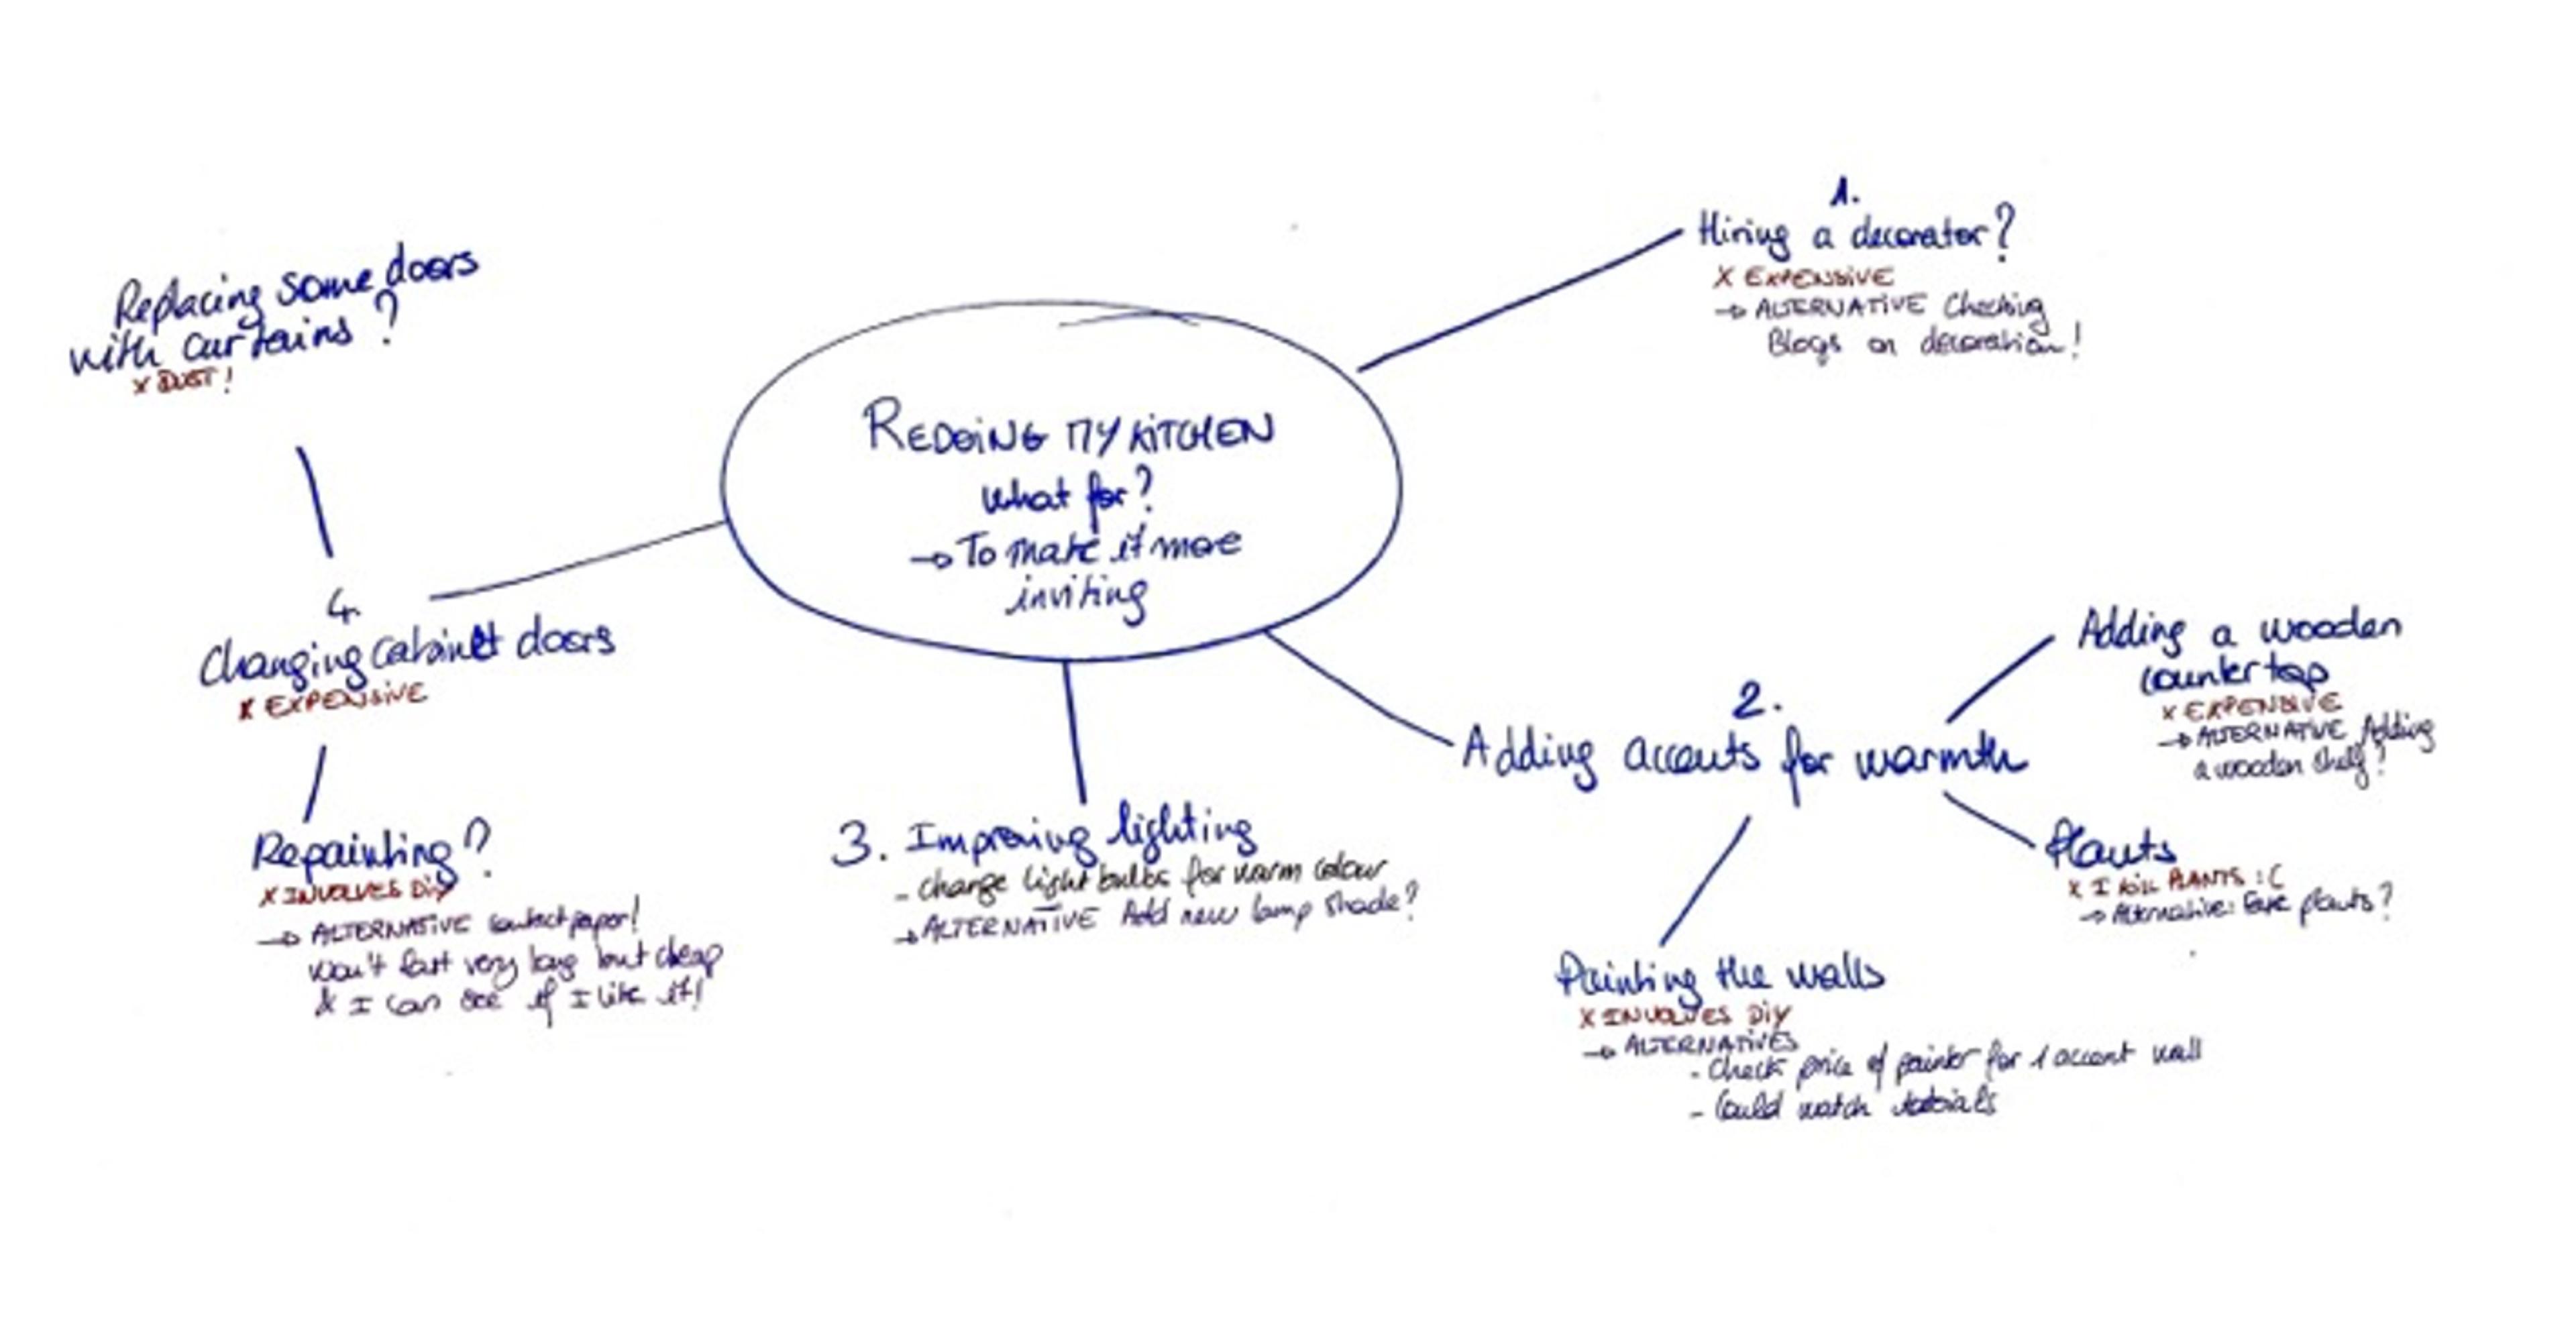 REDOING MY KITCHEN
What for?
→ To make it more
inviting
1.
Hiring a decorator?
X EXPENSIVE
→ ALTERNATIVE Checking
Blogs on decoration!
2.
Adding accents for warmth
Adding a wooden
countertop
X EXPENSIVE
→ ALTERNATIVE Adding
a wooden shelf?
Plants
X I KILL PLANTS :(
→ Alternative: Fake plants?
Painting the walls
X INVOLVES DiY
→ ALTERNATIVES
- Check price of painter for 1 accent wall
- Could watch tutorials
3. Improving lighting
- change light bulbs for warm colour
→ ALTERNATIVE Add new lamp shade?
4.
Changing cabinet doors
X EXPENSIVE
Replacing some doors
with curtains?
X DUST!
Repainting?
X INVOLVES DiY
→ ALTERNATIVE contact paper!
Won't last very long but cheap
& I can see if I like it!